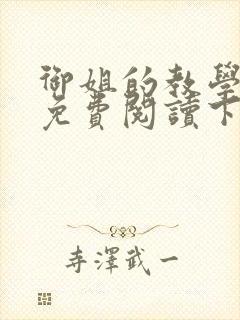 御姐的教學
免費閱讀下
寺澤武一